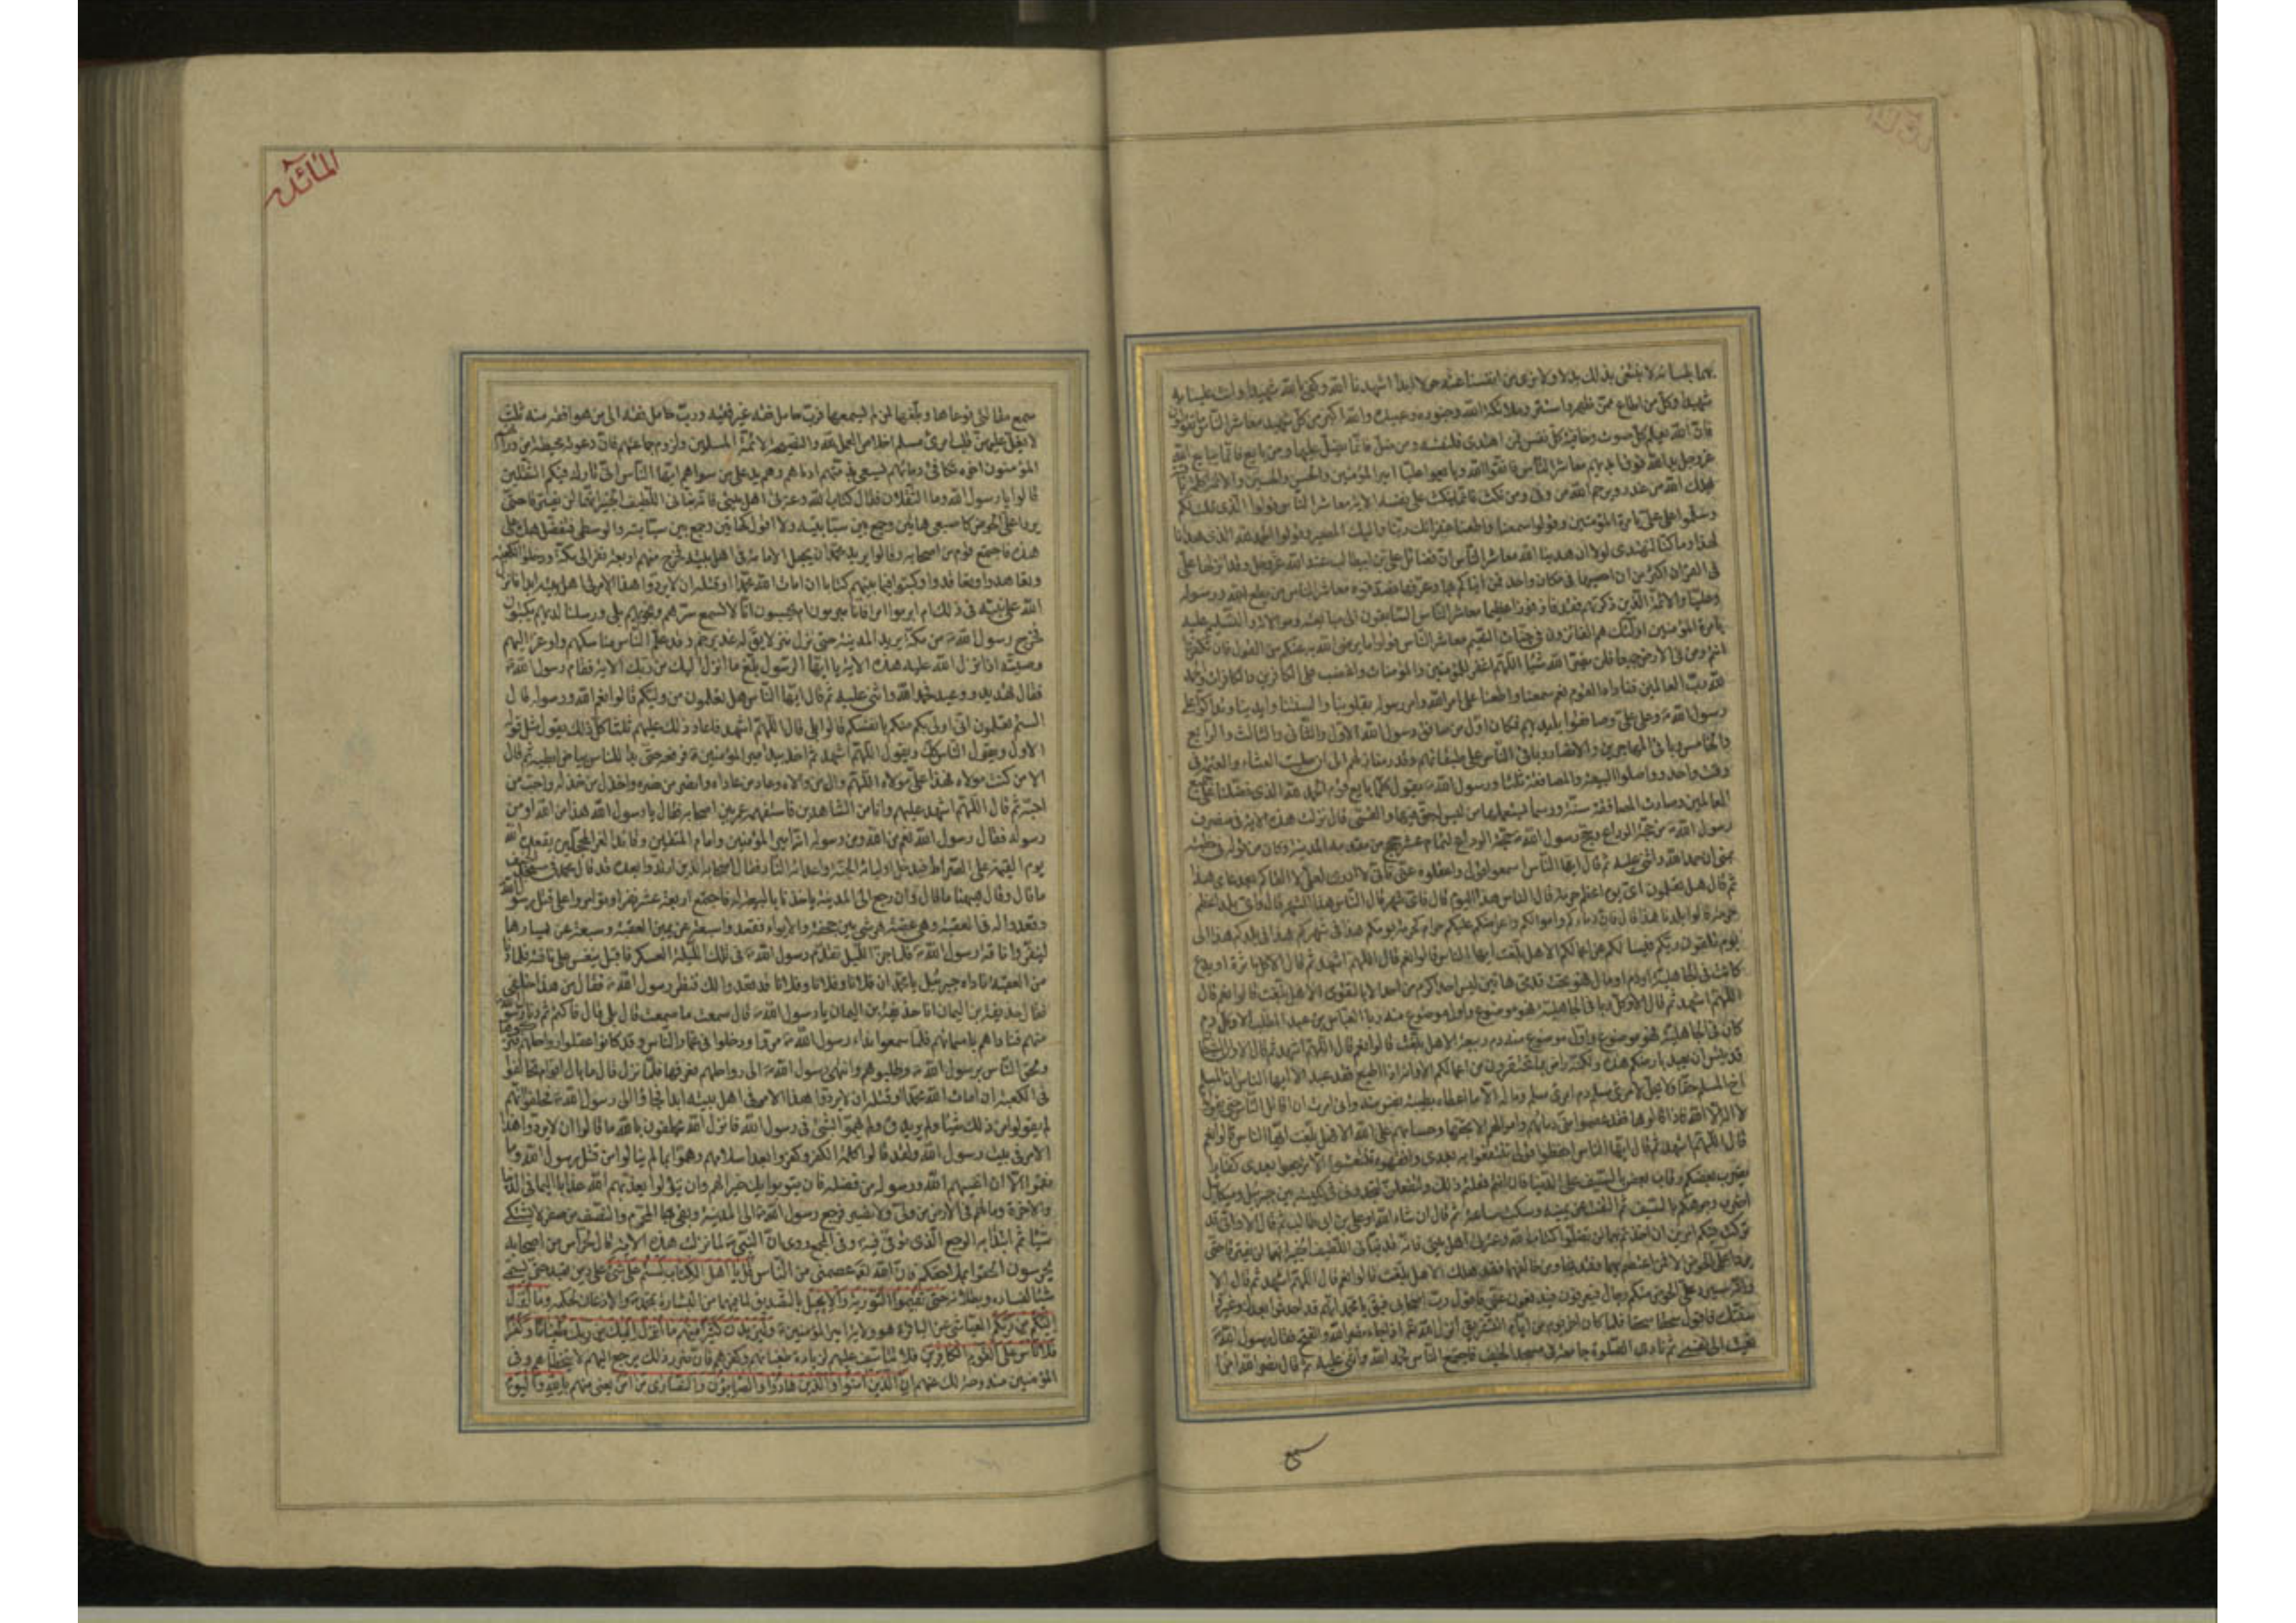 بهما بلسانه لا نبتغى بذلك بدلا ولا نرى من انفسنا عنه حولا ابدا اشهدنا الله وكفى بالله شهيدا وانت علينا به
شهيد وكل من اطاع ممن ظهر واستتر وملائكة الله وجنوده وعبيده والله اكبر من كل شهيد معاشر الناس ما تقولون
فان الله يعلم كل صوت وخافية كل نفس فمن اهتدى فلنفسه ومن ضل فانما يضل عليها ومن بايع فانما يبايع الله
عز وجل يد الله فوق ايديهم معاشر الناس فاتقوا الله وبايعوا عليا امير المؤمنين والحسن والحسين والائمة
يهلك الله من غدر ويرحم الله من وفى ومن نكث فانما ينكث على نفسه الاية معاشر الناس قولوا الذى قلت لكم
وسلموا على على بامرة المؤمنين وقولوا سمعنا واطعنا غفرانك ربنا واليك المصير وقولوا الحمد لله الذى هدانا
لهذا وما كنا لنهتدى لولا ان هدينا الله معاشر الناس ان فضائل على بن ابيطالب عند الله عز وجل وقد انزلها على
فى القران اكثر من ان احصيها فى مكان واحد فمن انباكم بها وعرفها فصدقوه معاشر الناس من يطع الله ورسوله
وعليا والائمة الذين ذكرتهم فقد فاز فوزا عظيما معاشر الناس السابقون الى مبايعته وموالاته والتسليم عليه
بامرة المؤمنين اولئك هم الفائزون فى جنات النعيم معاشر الناس قولوا ما يرضى الله به عنكم من القول فان تكفروا
انتم ومن فى الارض جميعا فلن يضر الله شيئا اللهم اغفر للمؤمنين والمؤمنات واغضب على الكافرين والكافرات والحمد
لله رب العالمين فناداه القوم نعم سمعنا واطعنا على امر الله وامر رسوله بقلوبنا والسنتنا وايدينا وتداكوا على
رسول الله وعلى على وصافقوا بايديهم فكان اول من صافق رسول الله الاول والثانى والثالث والرابع
والخامس وباقى المهاجرين والانصار وباقى الناس على طبقاتهم وقدر منازلهم الى ان صليت العشاء والعتمة فى
وقت واحد وواصلوا البيعة والمصافقة ثلثا ورسول الله يقول كلما بايع قوم الحمد لله الذى فضلنا على جميع
العالمين وصارت المصافقة سنة ورسما يستعملها من ليس له حق فيها والقمى قال نزلت هذه الاية فى منصرف
رسول الله من حجة الوداع وحج رسول الله حجة الوداع لتمام عشر حجج من مقدمه المدينة وكان من قوله فى خطبته
بمنى ان حمد الله واثنى عليه ثم قال ايها الناس اسمعوا قولى واعقلوه عنى فانى لا ادرى لعلى لا القاكم بعد عامى هذا
ثم قال هل تعلمون اى يوم اعظم حرمة قال الناس هذا اليوم قال فاى شهر قال الناس هذا الشهر قال واى بلد اعظم
حرمة قالوا بلدنا هذا قال فان دماءكم واموالكم واعراضكم عليكم حرام كحرمة يومكم هذا فى شهركم هذا فى بلدكم هذا الى
يوم تلقون ربكم فيسالكم عن اعمالكم الا هل بلغت ايها الناس قالوا نعم قال اللهم اشهد ثم قال الا وكل ماثرة او بدع
كانت فى الجاهلية او دم او مال فهو تحت قدمى هاتين ليس احد اكرم من احد الا بالتقوى الا هل بلغت قالوا نعم قال
اللهم اشهد ثم قال الا وكل ربا فى الجاهلية فهو موضوع واول موضوع منه ربا العباس بن عبد المطلب الا وكل دم
كان فى الجاهلية فهو موضوع واول موضوع منه دم ربيعة الا هل بلغت قالوا نعم قال اللهم اشهد ثم قال الا وان الشيطان
قد يئس ان يعبد بارضكم هذه ولكنه راض بما تحتقرون من اعمالكم الا وانه اذا اطيع فقد عبد الا ايها الناس ان المسلم
اخ المسلم حقا فلا يحل لامرئ مسلم دم امرئ مسلم وماله الا ما اعطاه بطيبة نفس منه وانى امرت ان اقاتل الناس حتى يقولوا
لا اله الا الله فاذا قالوها فقد عصموا منى دمائهم واموالهم الا بحقها وحسابهم على الله الا هل بلغت ايها الناس قالوا نعم
قال اللهم اشهد ثم قال ايها الناس احفظوا قولى تنتفعوا به بعدى وافهموه تنتعشوا الا لا ترجعوا بعدى كفارا
يضرب بعضكم رقاب بعض بالسيف على الدنيا فان انتم فعلتم ذلك ولتفعلن لتجدونى فى كتيبة بين جبرئيل وميكائيل
اضرب وجوهكم بالسيف ثم التفت عن يمينه وسكت ساعة ثم قال ان شاء الله او على بن ابى طالب ثم قال الا وانى قد
تركت فيكم امرين ان اخذتم بهما لن تضلوا كتاب الله وعترتى اهل بيتى فانه قد نبانى اللطيف الخبير انهما لن يفترقا حتى
يردا على الحوض الا فمن اعتصم بهما فقد نجا ومن خالفهما فقد هلك الا هل بلغت قالوا نعم قال اللهم اشهد ثم قال الا
وانه سيرد على الحوض منكم رجال فيعرفون فيدفعون عنى فاقول رب اصحابى فيق يا محمد انهم قد احدثوا بعدك وغيروا
سنتك فاقول سحقا سحقا فلما كان اخر يوم من ايام التشريق انزل الله اذا جاء نصر الله والفتح فقال رسول الله
نعيت الى نفسى ثم نادى الصلوة جامعة فى مسجد الخيف فاجتمع الناس فحمد الله واثنى عليه ثم قال نضر الله امرا
سع
المائدة
سمع مقالتى فوعاها وبلغها لمن لم يسمعها فرب حامل فقه غير فقيه ورب حامل فقه الى من هو افقه منه ثلث
لا يغل عليهن قلب امرئ مسلم اخلاص العمل لله والنصيحة لائمة المسلمين ولزوم جماعتهم فان دعوته محيطة من ورائهم
المؤمنون اخوة تتكافئ دمائهم يسعى بذمتهم ادناهم وهم يد على من سواهم ايها الناس انى تارك فيكم الثقلين
قالوا يا رسول الله وما الثقلان فقال كتاب الله وعترتى اهل بيتى فانه نبانى اللطيف الخبير انهما لن يفترقا حتى
يردا على الحوض كاصبعى هاتين وجمع بين سبابتيه ولا اقول كهاتين وجمع بين سبابته والوسطى فتفضل هذه على
هذه فاجتمع قوم من اصحابه وقالوا يريد محمد ان يجعل الامامة فى اهل بيته فخرج منهم اربعة نفر الى مكة ودخلوا الكعبة
وتعاهدوا وتعاقدوا وكتبوا فيما بينهم كتابا ان امات الله محمدا او قتل ان لا يردوا هذا الامر فى اهل بيته ابدا فانزل
الله على نبيه فى ذلك ام ابرموا امرا فانا مبرمون ام يحسبون انا لا نسمع سرهم ونجويهم بلى ورسلنا لديهم يكتبون
فخرج رسول الله من مكة يريد المدينة حتى نزل منزلا يق له غدير خم وقد علم الناس مناسكهم واوعز اليهم
وصيته اذ انزل الله عليه هذه الاية يا ايها الرسول بلغ ما انزل اليك من ربك الاية فقام رسول الله
فقال تهديد ووعيد فحمد الله واثنى عليه ثم قال ايها الناس هل تعلمون من وليكم قالوا نعم الله ورسوله قال
الستم تعلمون انى اولى بكم منكم بانفسكم قالوا بلى قال اللهم اشهد فاعاد ذلك عليهم ثلثا كل ذلك يقول مثل قوله
الاول ويقول الناس كك ويقول اللهم اشهد ثم اخذ بيد امير المؤمنين فرفعه حتى بدا للناس بياض ابطيه ثم قال
الا من كنت مولاه فهذا على مولاه اللهم وال من والاه وعاد من عاداه وانصر من نصره واخذل من خذله واحب من
احبه ثم قال اللهم اشهد عليهم وانا من الشاهدين فاستفهمه عمر بين اصحابه فقال يا رسول الله هذا من الله او من
رسوله فقال رسول الله نعم من الله ومن رسوله انه امير المؤمنين وامام المتقين وقائد الغر المحجلين يقعده الله
يوم القيمة على الصراط فيدخل اوليائه الجنة واعدائه النار فقال اصحابه الذين ارتدوا بعده قد قال محمد فى مسجد الخيف
ما قال وقال هيهنا ما قال وان رجع الى المدينة ياخذنا بالبيعة له فاجتمع اربعة عشر نفرا وتوامروا على قتل رسول الله
وقعدوا له فى العقبة وهى عقبة هرشى بين جحفة والابواء فقعد سبعة عن يمين العقبة وسبعة عن يسارها
لينفروا ناقة رسول الله فلما جن الليل تقدم رسول الله فى تلك الليلة العسكر فاقبل ينعس على ناقته فلما دنا
من العقبة ناداه جبرئيل يا محمد ان فلانا وفلانا وفلانا قد قعدوا لك فنظر رسول الله فقال من هذا خلفى
فقال حذيفة بن اليمان انا حذيفة بن اليمان يا رسول الله قال سمعت ما سمعت قال بلى قال فاكتم ثم دنا رسول الله
منهم فناداهم باسمائهم فلما سمعوا نداء رسول الله مروا ودخلوا فى غمار الناس وقد كانوا عقلوا رواحلهم فتركوها
ولحق الناس برسول الله وطلبوهم وانتهى رسول الله الى رواحلهم فعرفها فلما نزل قال ما بال اقوام تحالفوا
فى الكعبة ان امات الله محمدا او قتل ان لا يردوا هذا الامر فى اهل بيته ابدا فجاؤا الى رسول الله فحلفوا انهم
لم يقولوا من ذلك شيئا ولم يريدوه ولم يهموا بشئ فى رسول الله فانزل الله يحلفون بالله ما قالوا ان لا يردوا هذا
الامر فى بيت رسول الله ولقد قالوا كلمة الكفر وكفروا بعد اسلامهم وهموا بما لم ينالوا من قتل رسول الله وما
نقموا الا ان اغنيهم الله ورسوله من فضله فان يتوبوا يك خيرا لهم وان يتولوا يعذبهم الله عذابا اليما فى الدنيا
والاخرة وما لهم فى الارض من ولى ولا نصير فرجع رسول الله الى المدينة وبقى بها المحرم والنصف من صفر لا يشتكى
شيئا ثم ابتدا به الوجع الذى توفى فيه وفى المجمع روى ان النبى لما نزلت هذه الاية قال لحراس من اصحابه
يحرسونه الحقوا بملاحقكم فان الله تعه عصمنى من الناس قل يا اهل الكتاب لستم على شئ على دين يعتد به حتى يسمى
شيئا لفساده وبطلانه حتى تقيموا التورية والانجيل بالتصديق لما فيهما من البشارة بمحمد والاذعان لحكمه وما انزل
اليكم من ربكم العياشى عن الباقر هو ولاية امير المؤمنين وليزيدن كثيرا منهم ما انزل اليك من ربك طغيانا وكفرا
فلا تاس على القوم الكافرين فلا تتاسف عليهم لزيادة طغيانهم وكفرهم فان ضرر ذلك يرجع اليهم لا يتخطاهم وفى
المؤمنين مندوحة لك عنهم ان الذين امنوا والذين هادوا والصابئون والنصارى من امن يعنى منهم بالله واليوم